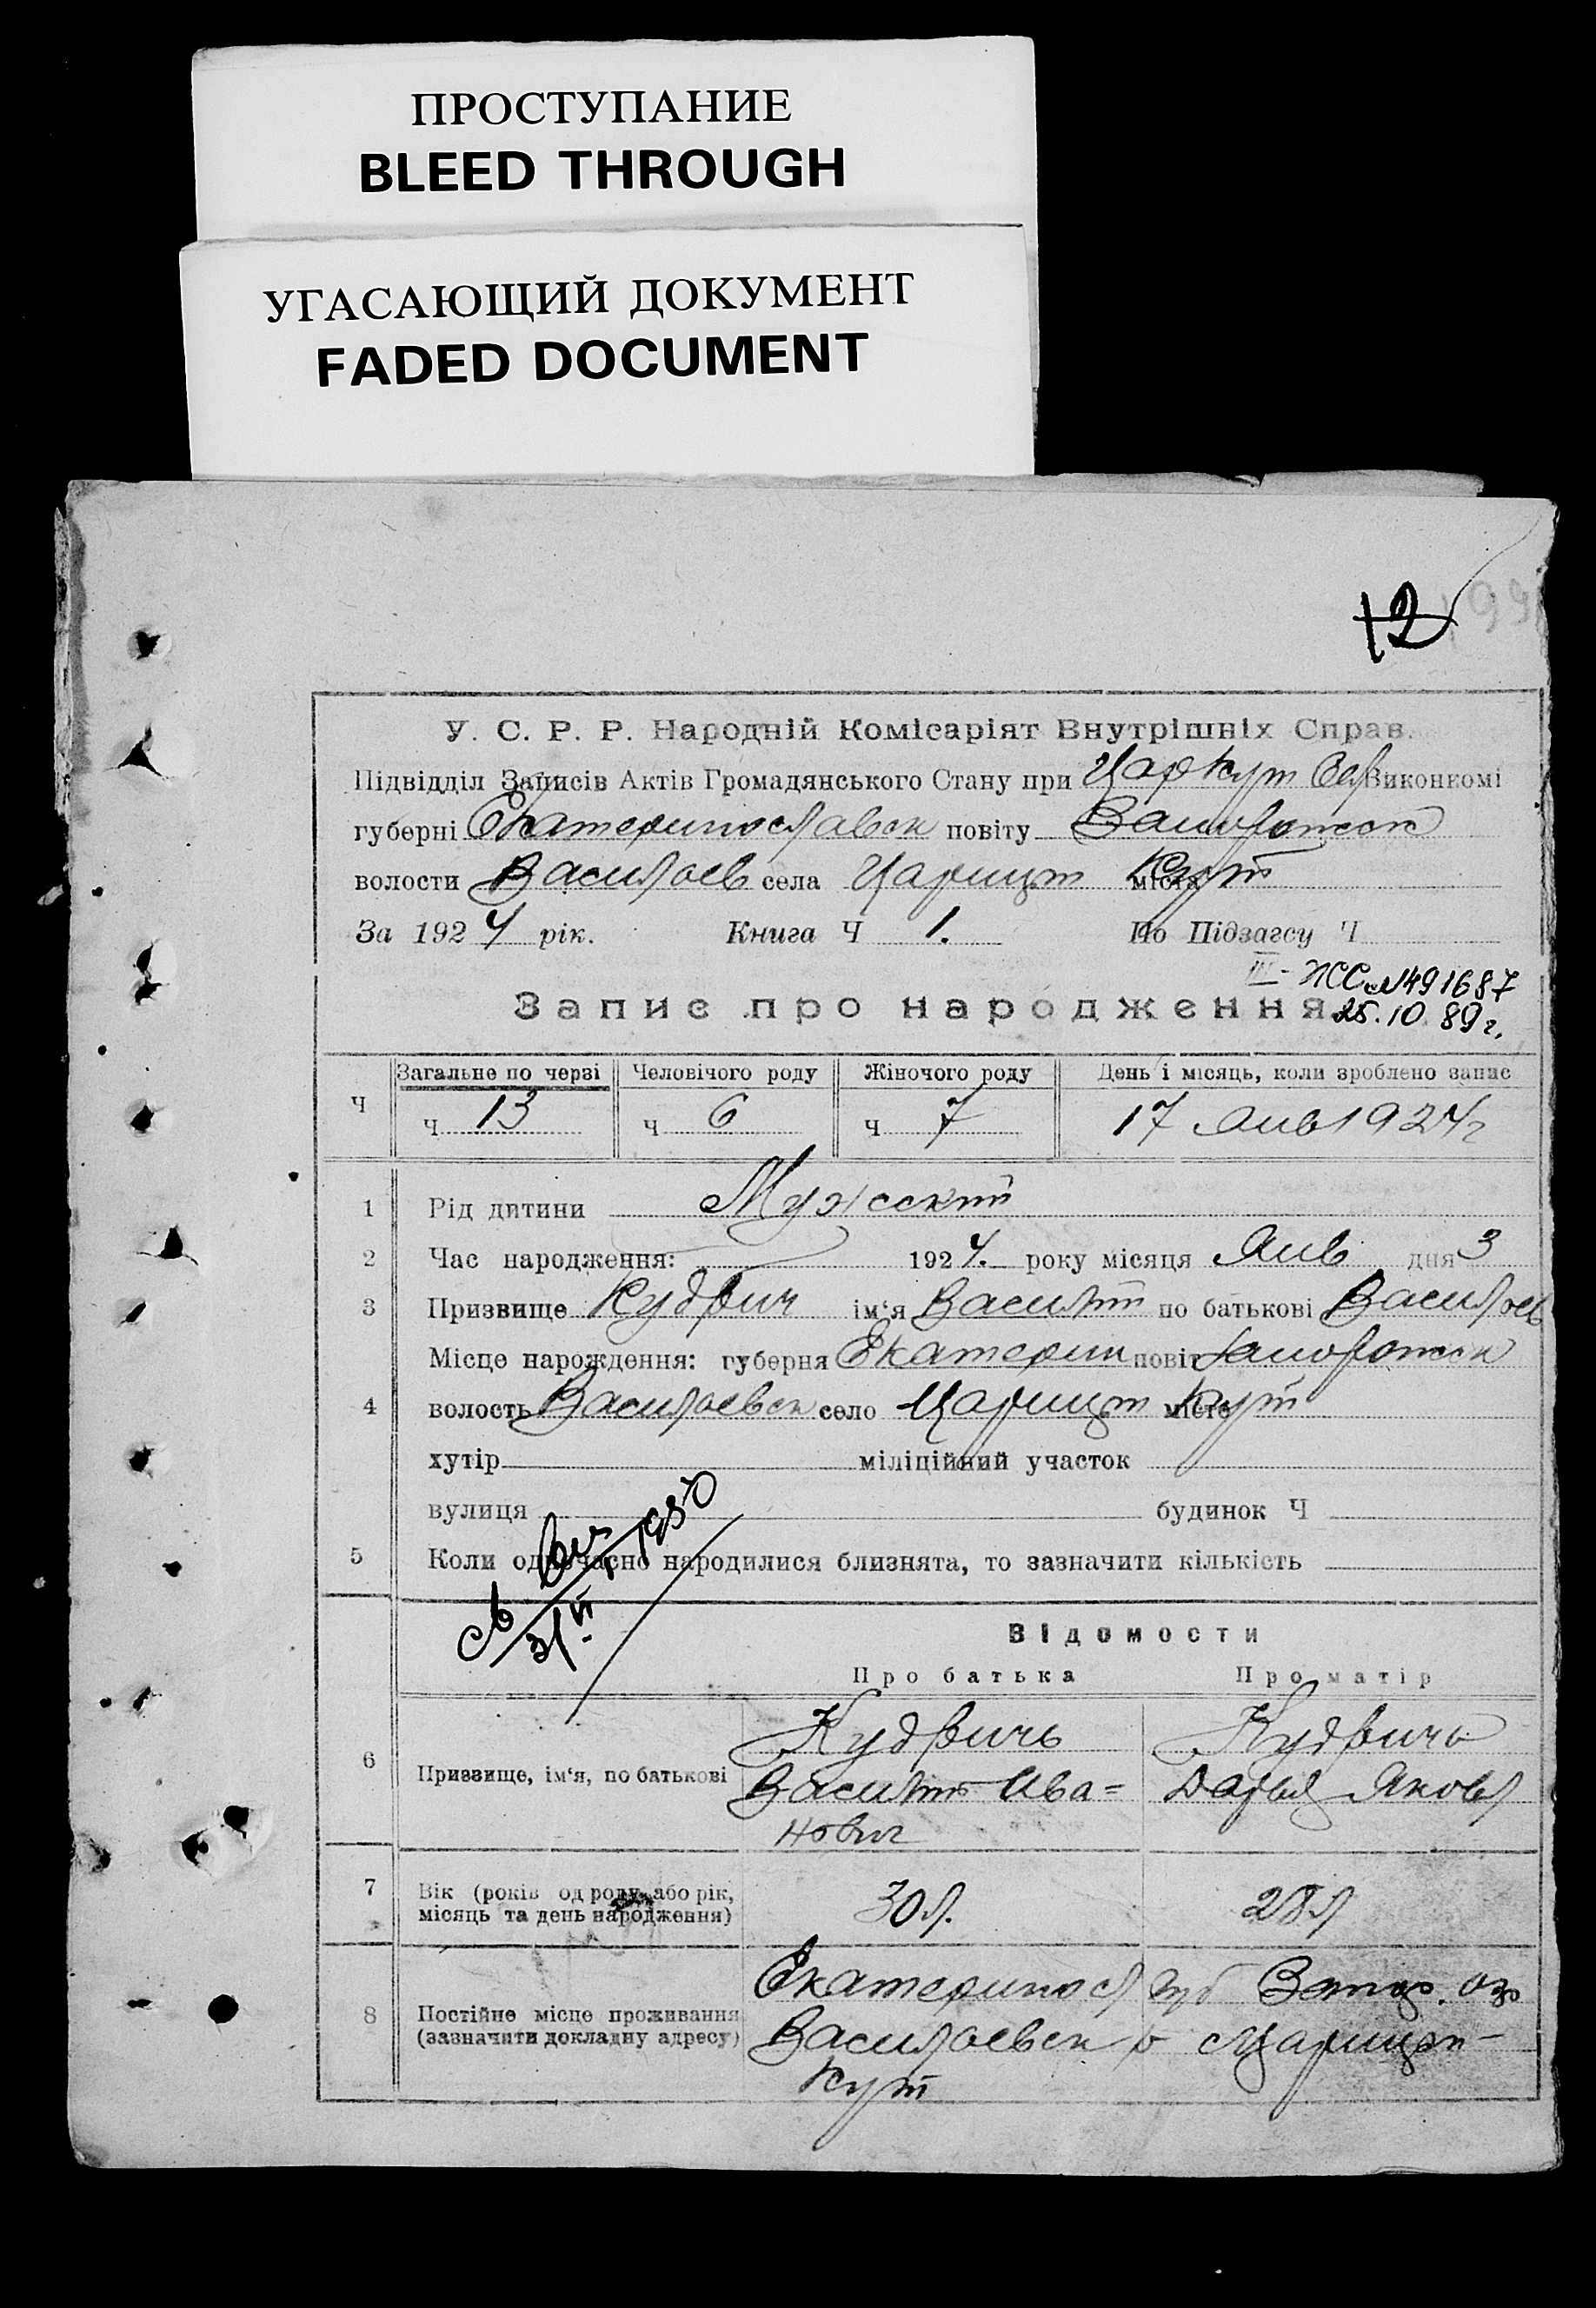 ПРОСТУПАНИЕ
BLEED THROUGH
УГАСАЮЩИЙ ДОКУМЕНТ
FADED DOCUMENT
12
У. С. Р. Р. Народній Комісаріят Внутрішніх Справ.
Підвідділ Записів Актів Громадянського Стану при Царкут Сел Виконкомі
губерні Екатеринославск повіту Запорожск
волости Васильев села Царицын міста Кут
За 1924 рік. Книга Ч 1. По Підзагсу Ч
III-ЖС №491687
Запис про народження
25.10.89г.
Загальне по черзі Человічого роду Жіночого роду День і місяць, коли зроблено запис
Ч ч 13 ч 6 ч 7 17 Янв 1924г
1 Рід дитини Мужский
2 Час народження: 1924. року місяця Янв дня 3
3 Призвище Кудрич ім‘я Василий по батькові Васильев
Місце нарождення: губерня Екатерин повіт Запорожск
4 волость Васильевск село Царицын місто Кут
хутір міліційний участок
вулиця будинок Ч
5 Коли одночасно народилися близнята, то зазначити кількість
1950
Відомости
Про батька Про матір
6 Призвище, ім‘я, по батькові
Кудричь
Василий Ива=
нович
Кудричь
Дарья Яковл
7 Вік (років од роду або рік,
місяць та день народження)
30л. 28л
8 Постійне місце проживання
(зазначити докладну адресу)
Екатериносл губ
Васильевск р с Царицын-
Кут